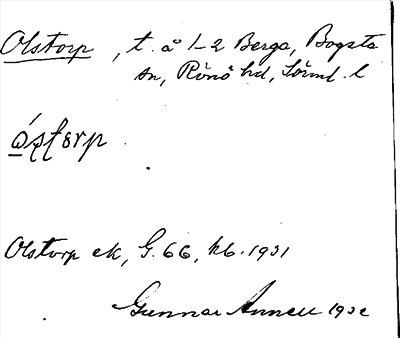 Olstorp, t. å 1-2 Berga, Bogsta
sn, Rönö hd, Sörml. l
ò́sţorp
Olstorp ek, G. 66, kb. 1931
Gunnar Annell 1932